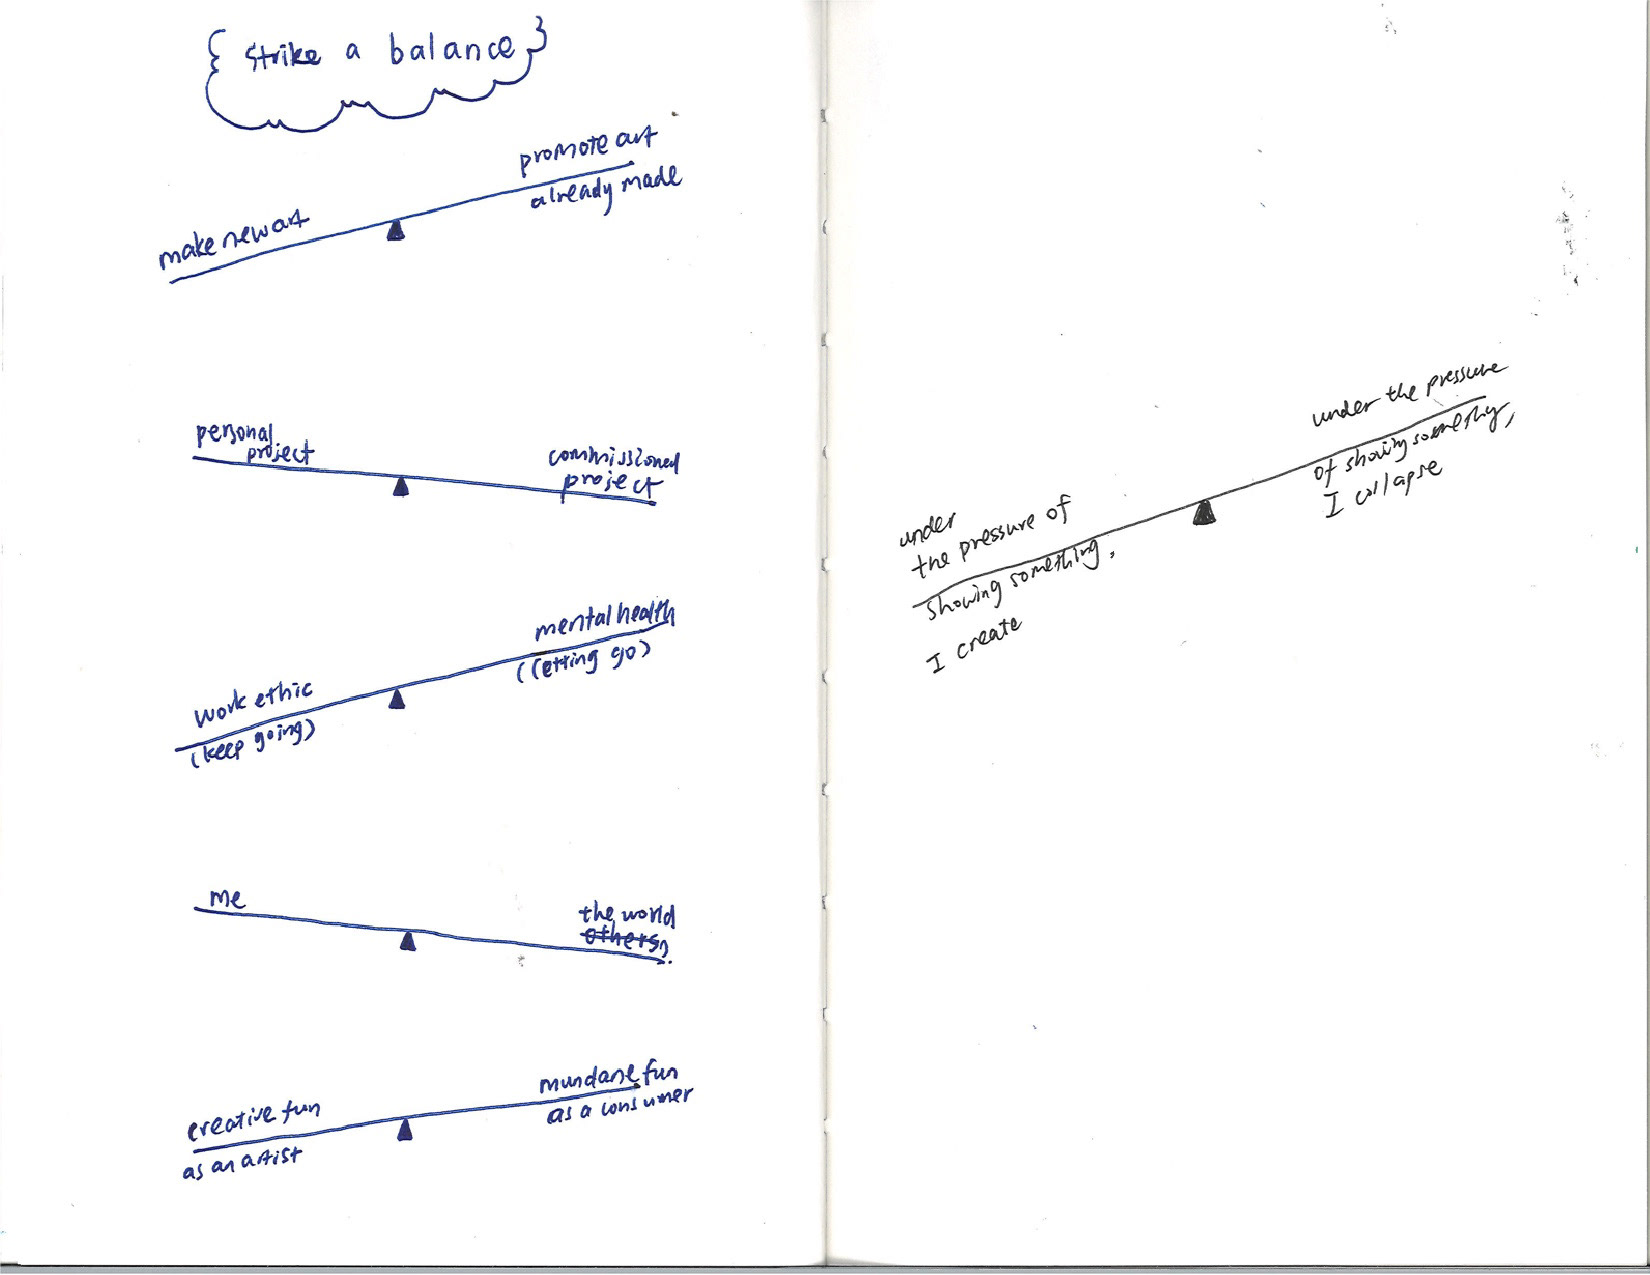 { strike a balance }
promote art
already made
make new art
personal
project
commissioned
project
mental health
(letting go)
work ethic
(keep going)
me
the world
others,
mundane fun
as a consumer
creative fun
as an artist
under the pressure
of showing something,
I collapse
under
the pressure of
showing something,
I create